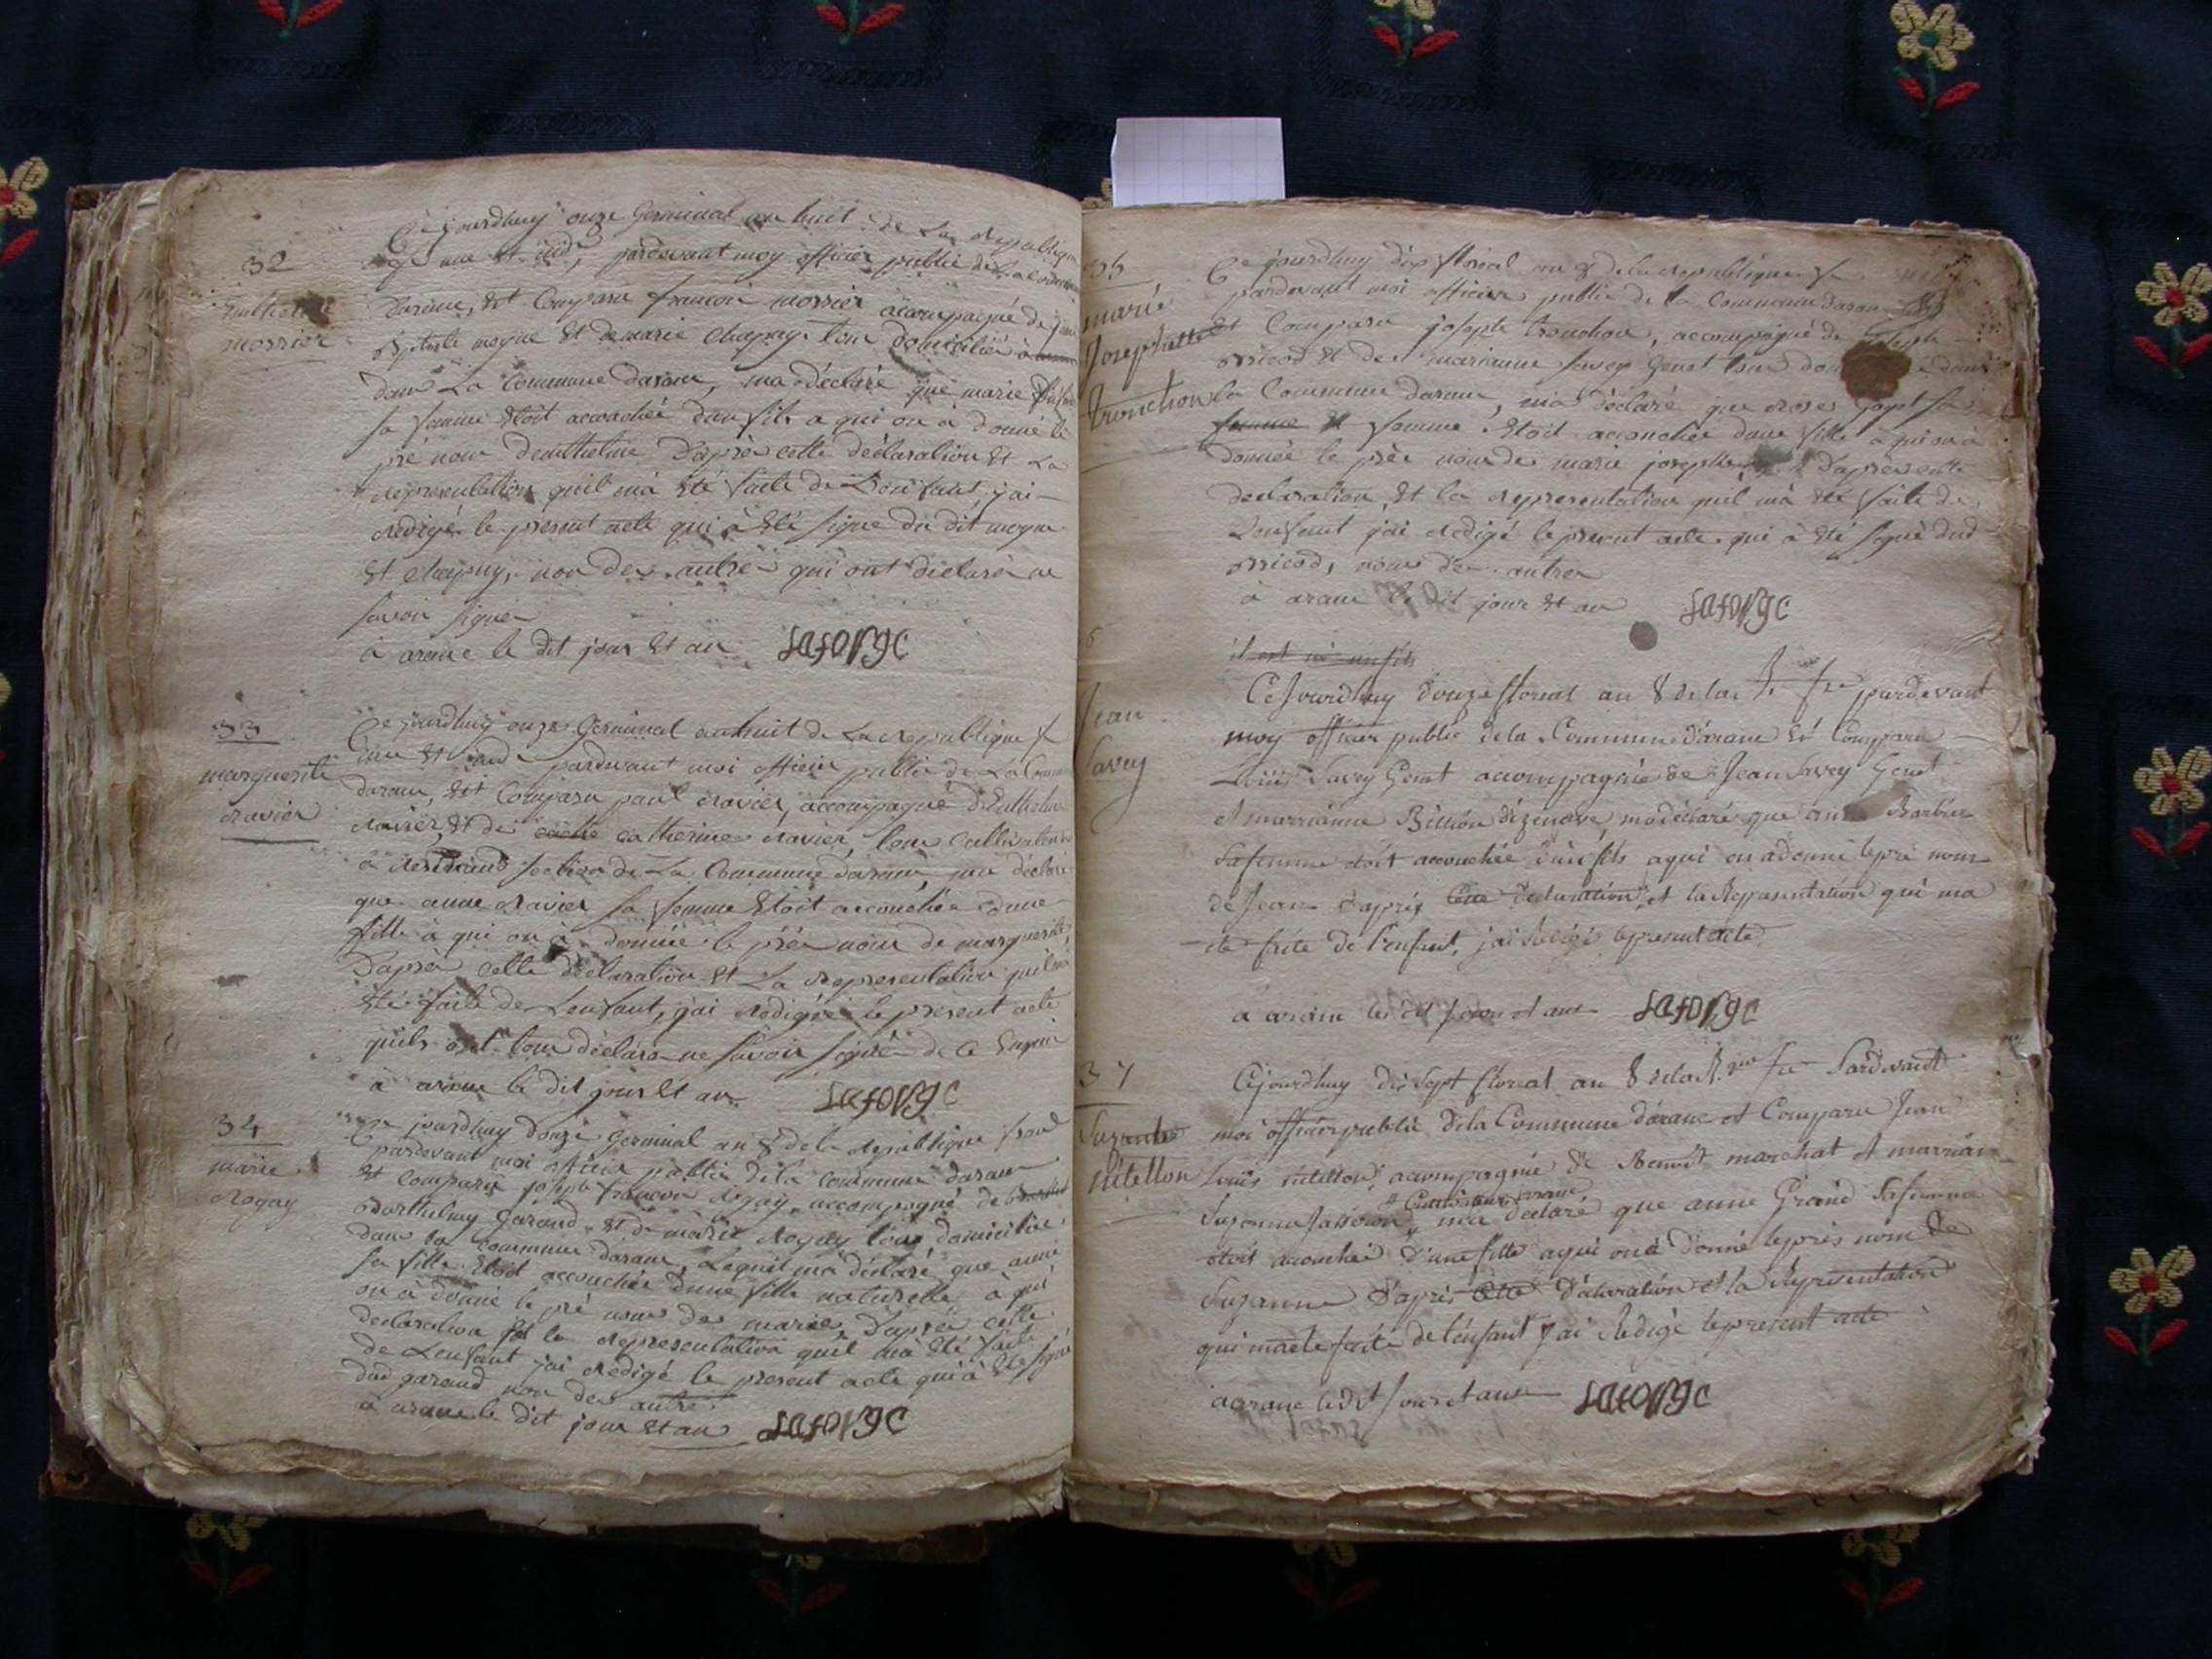 32
morrier
Ce jourdhuy onze Germinal an huit de La republique
une et ind, pardevant moy officier public de La
Darane, est Comparu francois morrier acompagné de
Bptiste moyne Et de marie Chapuy tous domicilié à
dans La Commune darane, ma déclaré que marie
sa femme Etoit accouchée dun fils a qui on a donné le
pré nom Dentthelme D'après cette déclaration Et La
representation quil mà Eté faite de Lenfant, jai
redigé le present acte qui à Eté signe du dit moyne
Et Chapuy, non des autres qui ont déclaré ne
savoir signer
à arane le dit jour Et an Laforge
33
marguerite
ravier
Ce jourdhuy onze Germinal an huit de La republique f
une Et ind pardevant moi officier public de La
darane, Est Comparu paul ravier, accompagné
ravier, Et de catherine ravier, tous Cultivateurs
à section de La Commune darane, ma déclaré
que anne ravier sa femme Etoit accouchée dune
fille à qui on à donnée le pré nom de marguerite,
D'après cette déclaration Et La representation quil mà
Eté faite de Lenfant, jai redigé le present acte
quils ont tous déclaré ne savoir signer de ce Enquis
à arane le dit jour Et an Laforge
34
marie
Rogay
Ce jourdhuy douze Germinal an 8 de la republique
pardevant moi officier public de la commune darane
Est comparu joseph francois Rogay accompagné de
Barthelmy garaud Et de marie Rogay tous domicilié
dans la commune darane, Lequel mà déclaré que anne
sa fille Etoit accouchée dune fille naturelle à qui
on à donné le pré nom de marie D'après cette
declaration Et la representation quil mà Eté faite
de Lenfant jai redigé le present acte qui à Eté signé
dud garaud non des autres
à arane le dit jour Et an Laforge
35
marie
Josephette
tronchon
Ce jourdhuy dix floréal an 8 de la republique f
pardevant moi officier public de la Commune darane
Est Comparu joseph tronchon, accompagné de joseph
orsicod Et de marianne savey Genet tous dans
la Commune darane, mà déclaré que sa
femme Etoit accouchée dune fille à qui on a
donnée le pré nom de marie josephte D'après cette
declaration, Et la representation quil mà Eté faite de
Lenfant jai redigé le present acte qui à Eté signé dud
orsicod, non des autres
à arane le dit jour Et an Laforge
il est né un fils
Jean
Savey
Ce Jourdhuy douze floreal an 8 de la R. fse pardevant
moy officier public de la Commune d'arane Est Comparu
Louis Savey Genet accompagnie de Jean Savey Genet
et marrianne Billion dizenave, ma déclaré que Barbier
sa femme etoit accouchée d'un fils aqui on adonné le pré nom
de Jean d'apres Cette Declaration, et la Represantation qui ma
ete faite de l'enfant, jai Redigé le present acte
a arane le dit Jour et an Laforge
37
Suzanne
pitetton
Cejourdhuy dix sept floreal an 8 de la R.que fse Pardevant
moi officier public dela Commune d'arane et Comparu Jean
Louis pitetton, accompagnie de Benoit marchat et marrian
Suzanne ma déclaré que anne Grand Safemme
etoit accouchée d'une fille aqui on à donné le pres nom de
Suzanne D'après Cette D'aclaration et la Representation
qui ma ete faite de l'enfant J'ai Redigé le present acte
a arane le dit Jour et an Laforge